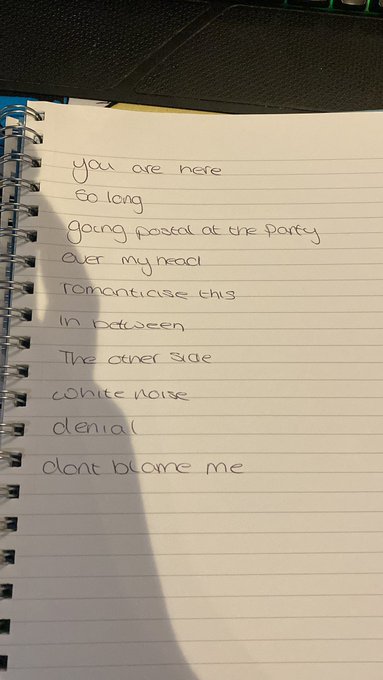 you are here
So long
going postal at the party
over my head
romanticise this
In between
The other side
white noise
denial
dont blame me